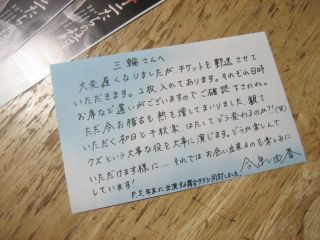 三輪さんへ
大変遅くなりましたが、チケットを郵送させて
いただきます。2枚入れてあります。それぞれ日時
お席など違いがございますのでご確認下されね。
ただ今お稽古も熱を増してまいりました。観て
いただく初日と千秋楽、はたしてどう変わるのか?!(笑)
クズという大事な役を大事に演じます。どうか楽しんで
いただけます様に…それではお会い出来るのを楽しみに
しています!
P.S. 年末に出演する舞台チラシ同封しました!